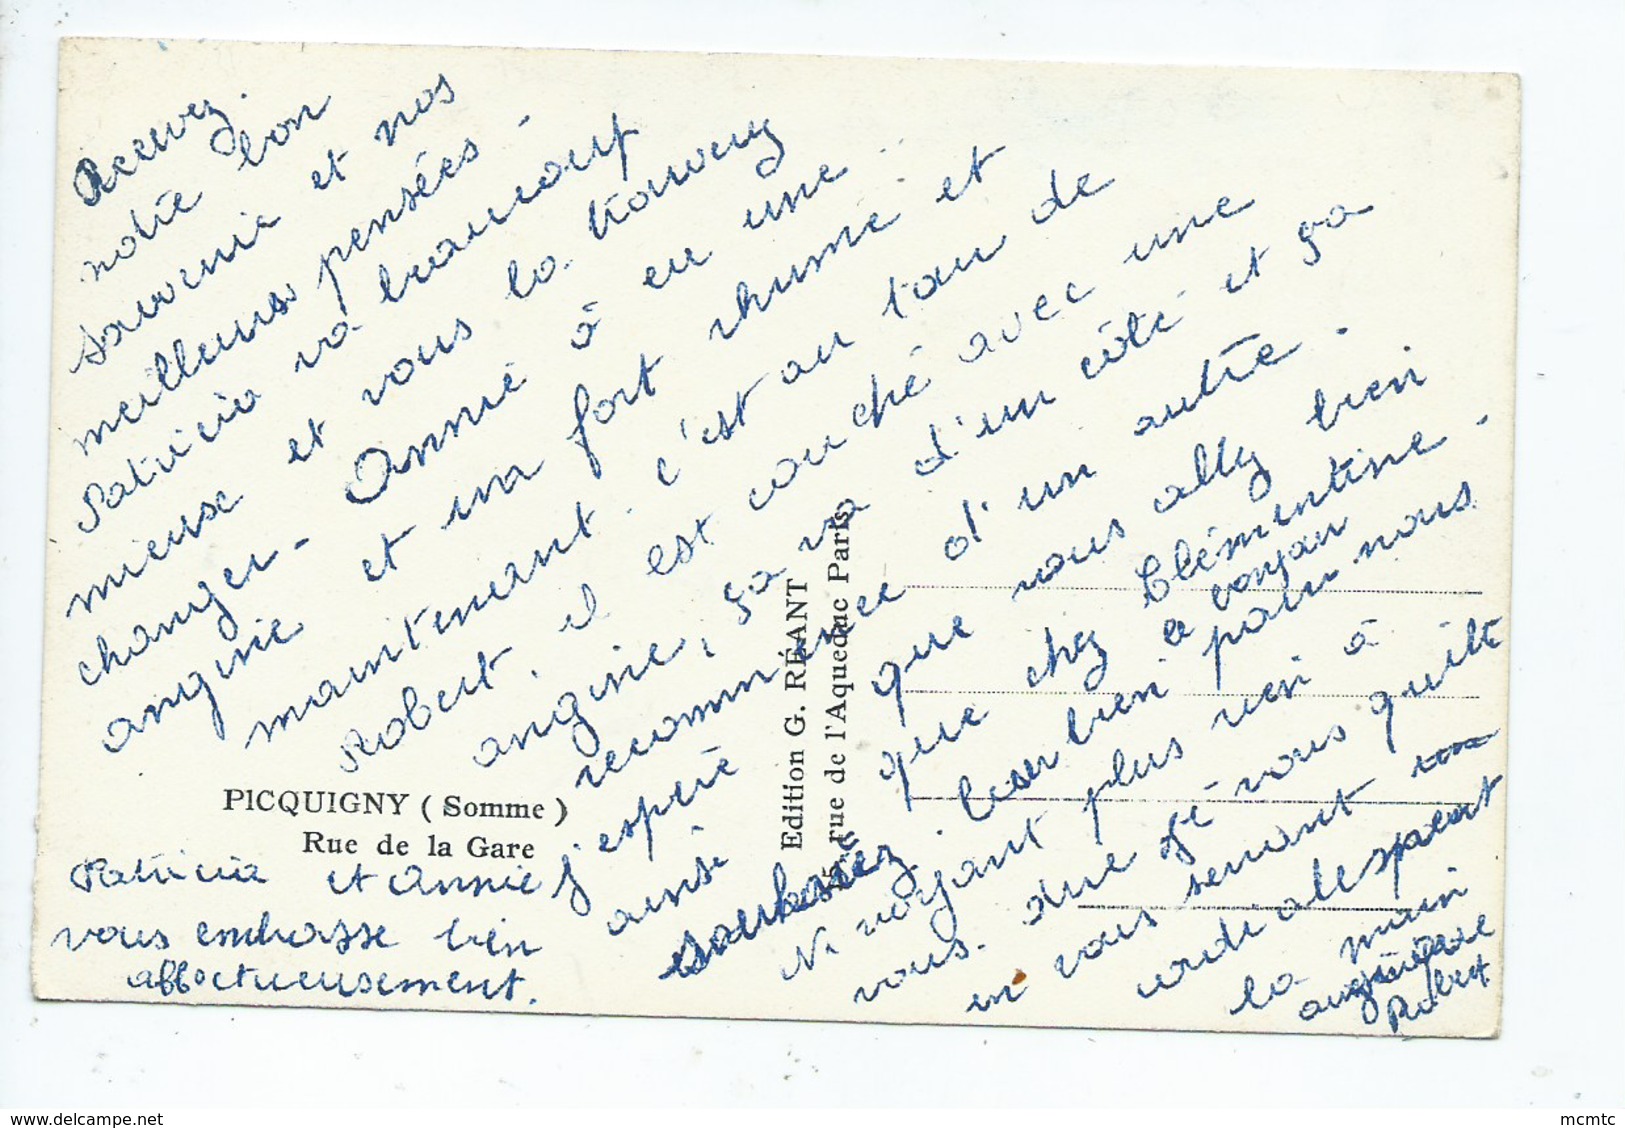 Recevez
notre bon
souvenir et nos
meilleurs pensées.
Patricia va beaucoup
mieux et vous la trouverez
changer - Annie à eu une
angine et un fort rhume et
maintenant c'est au tour de
Robert, il est couché avec une
angine, ça va d'un côté et ça
recommence d'un autre.
J'espère que vous allez bien
ainsi que chez Clémentine.
bien pour nous
Ne voyant plus rien à
vous dire je vous quitte
en vous serrant
cordialement
la main
Robert
Patricia et Annie
vous embrasse bien
affectueusement.
PICQUIGNY (Somme)
Rue de la Gare
Edition G. RÉANT
rue de l'Aqueduc Paris
www.delcampe.net
mcmtc